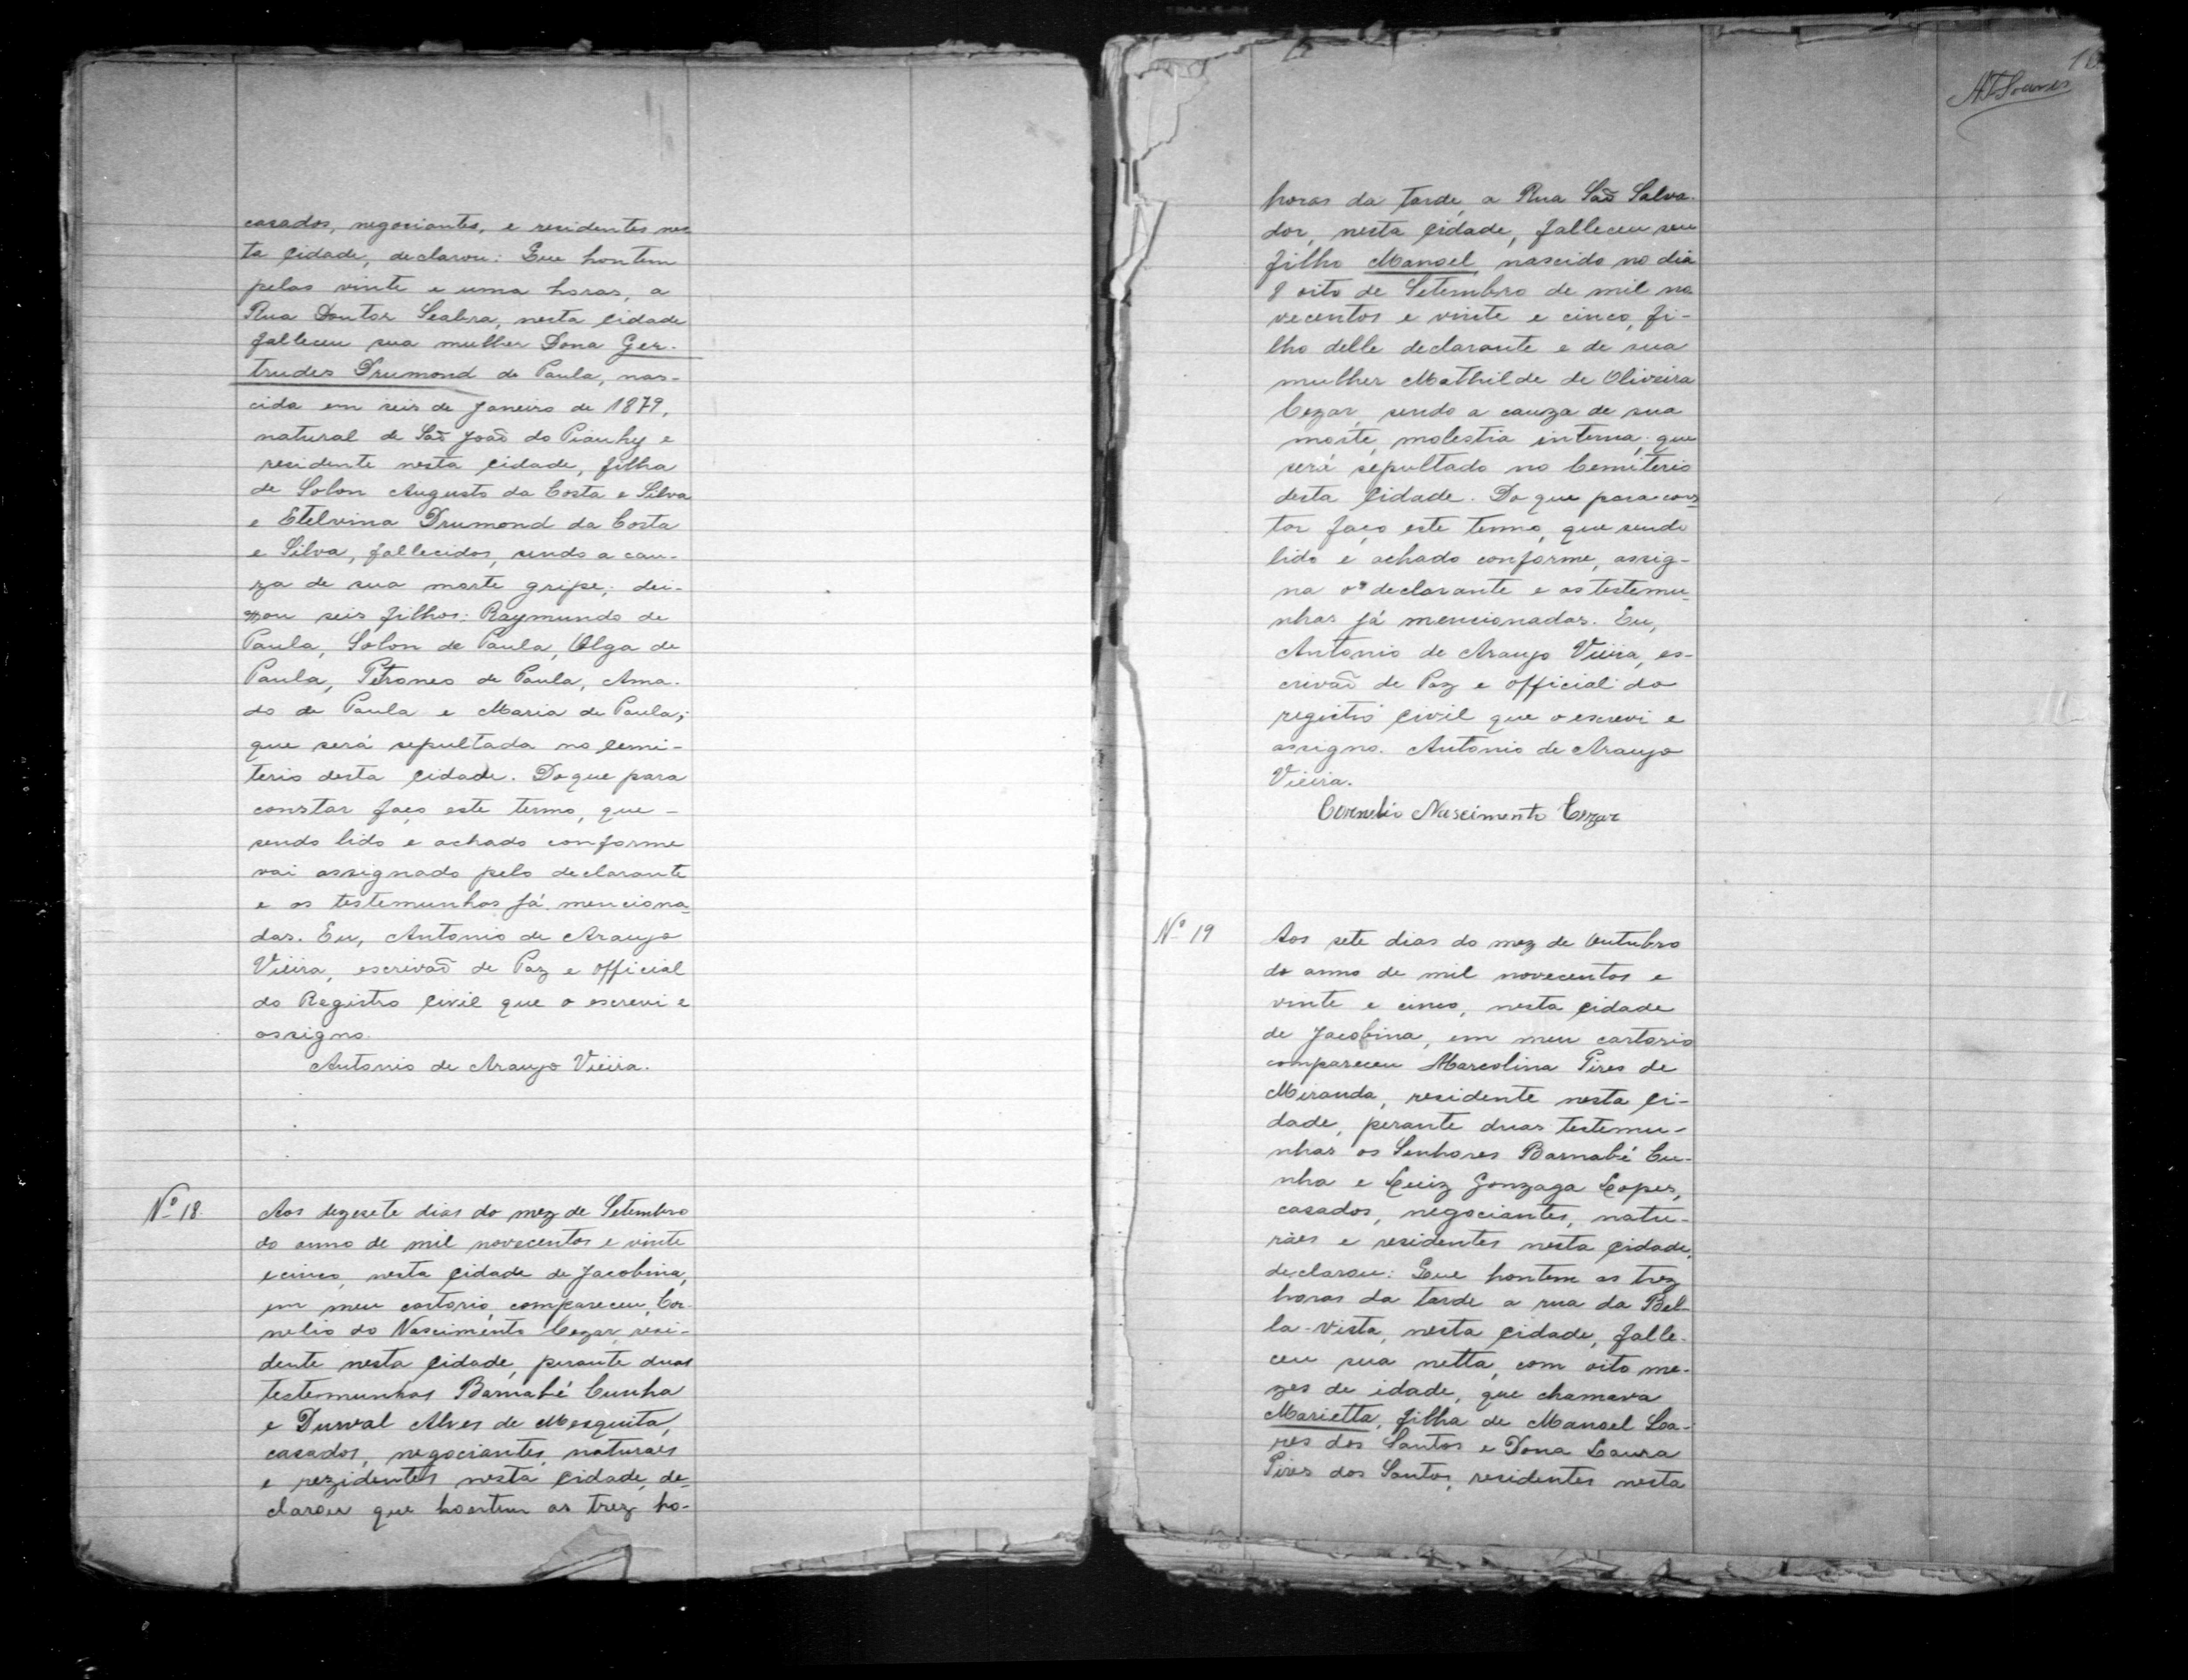 casados, negociantes, e residentes nes
ta cidade, declarou: Que hontem
pelas vinte e uma horas, a
Rua Doutor Seabra, nesta cidade
falleceu sua mulher Dona Ger-
trudes Drumond de Paula, nas-
cida em seis de Janeiro de 1879,
natural de Saõ Joaõ do Piauhy e
residente nesta cidade, filha
de Solon Augusto da Costa e Silva
e Etelvina Drumond da Costa
e Silva, fallecidos, sendo a cau-
za de sua morte gripe; dei-
xou seis filhos: Raymundo de
Paula, Solon de Paula, Olga de
Paula, Petroneo de Paula, Ama-
do de Paula e Maria de Paula;
que será sepultada no cemi-
terio desta cidade. Do que para
constar faço este termo, que -
sendo lido e achado conforme
vai assignado pelo declarante
e as testemunhas já menciona-
das. Eu, Antonio de Araujo
Vieira, escrivaõ de Paz e official
do Registro Civil que o escrevi e
assigno.
Antonio de Araujo Vieira.
Nº 18.
Aos dezesete dias do mez de Setembro
do anno de mil novecentos e vinte
e cinco, nesta cidade de Jacobina,
em meu cartorio, compareceu, Cor-
nelio do Nascimento Cezar, resi-
dente nesta cidade, perante duas
testemunhas Barnabé Cunha
e Durval Alves de Mesquita,
casados, negociantes, naturaes
e rezidentes nesta cidade, de-
clarou que hontem as trez ho-
16
horas da tarde, a Rua Saõ Salva-
dor, nesta cidade, falleceu seu
filho Manoel, nascido no dia
8 oito de Setembro de mil no-
vecentos e vinte e cinco, fi-
lho delle declarante e de sua
mulher Mathilde de Oliveira
Cezar, sendo a cauza de sua
morte, molestia interna; que
será sepultado no Cemiterio
desta Cidade. Do que para cons-
tar faço este termo, que sendo
lido e achado conforme, assig-
na o declarante e as testemu-
nhas já mencionadas. Eu,
Antonio de Araujo Vieira, es-
crivaõ de Paz e official do
registro civil que o escrevi e
assigno. Antonio de Araujo
Vieira.
Cornelio Nascimento Cezar
Nº 19
Aos sete dias do mez de Outubro
do anno de mil novecentos e
vinte e cinco, nesta cidade
de Jacobina, em meu cartorio
compareceu Marcolina Pires de
Miranda, residente nesta Ci-
dade, perante duas testemu-
nhas os Senhores Barnabé Cu-
nha e Luiz Gonzaga Lopes,
casados, negociantes, natu-
raes e residentes nesta cidade,
declarou: Que hontem as trez
horas da tarde a rua da Bel-
la-Vista, nesta cidade, falle-
ceu sua netta, com oito me-
zes de idade, que chamava
Marietta, filha de Manoel Soa-
res dos Santos e Dona Laura
Pires dos Santos, residentes nesta